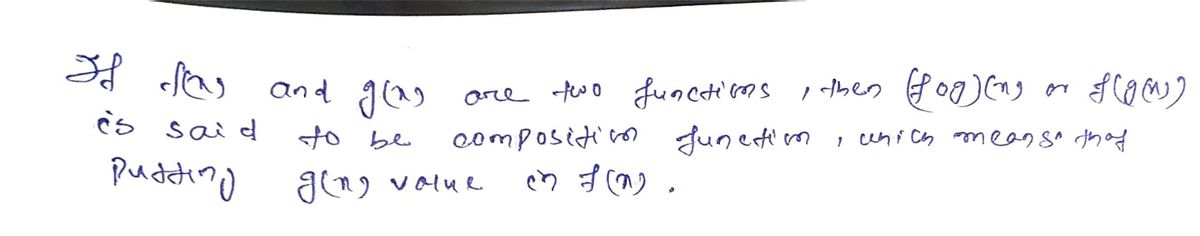 If f(x) and g(x) are two functions, then (fog)(x) or f(g(x))
is said to be composition function, which means that
Putting g(x) value in f(x).